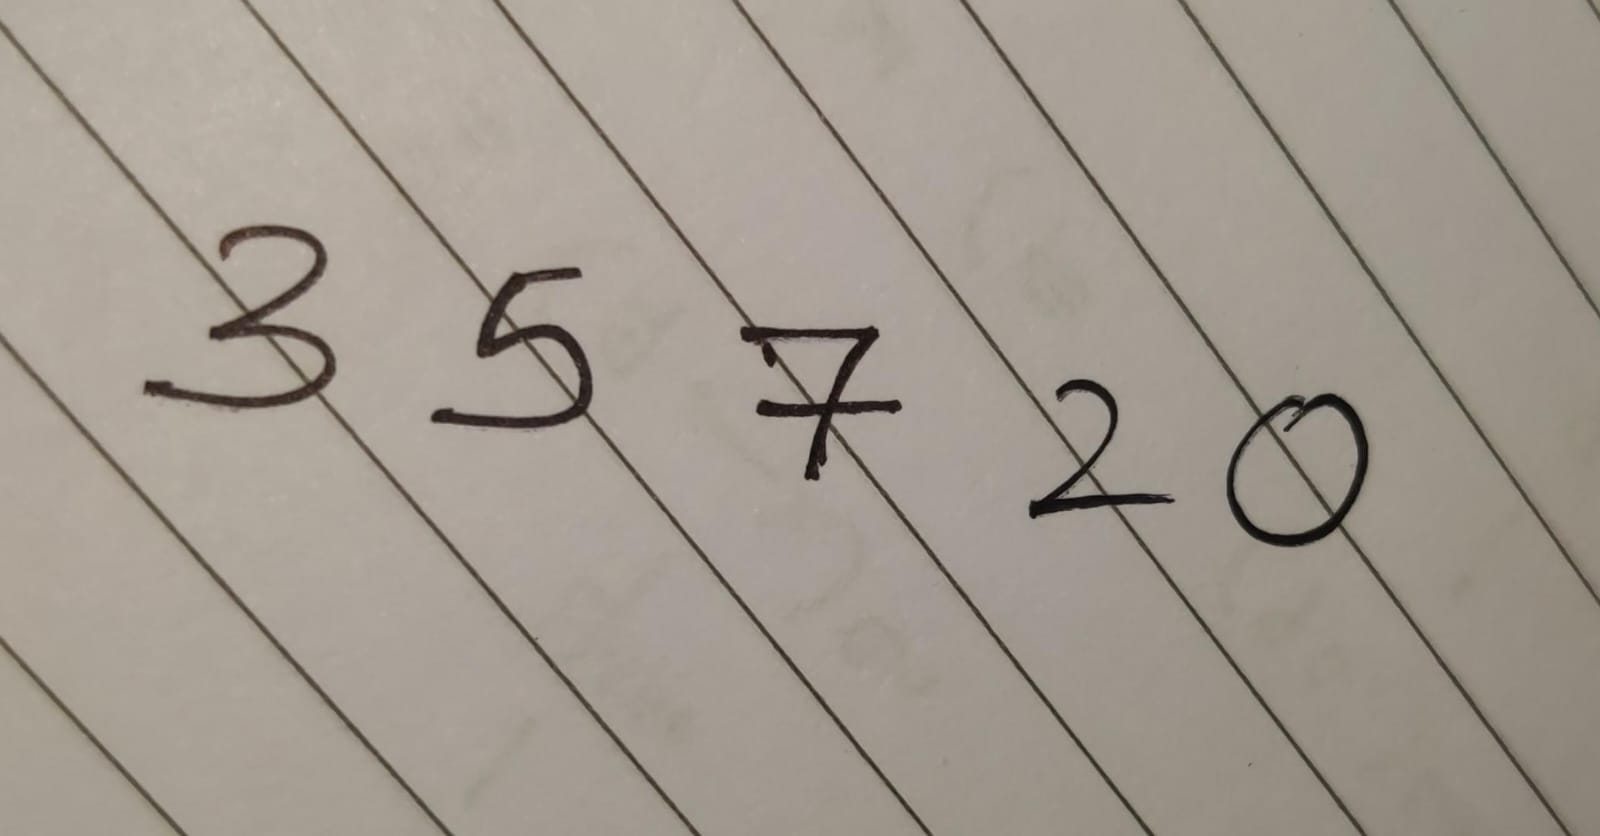 3 5 7 2 0